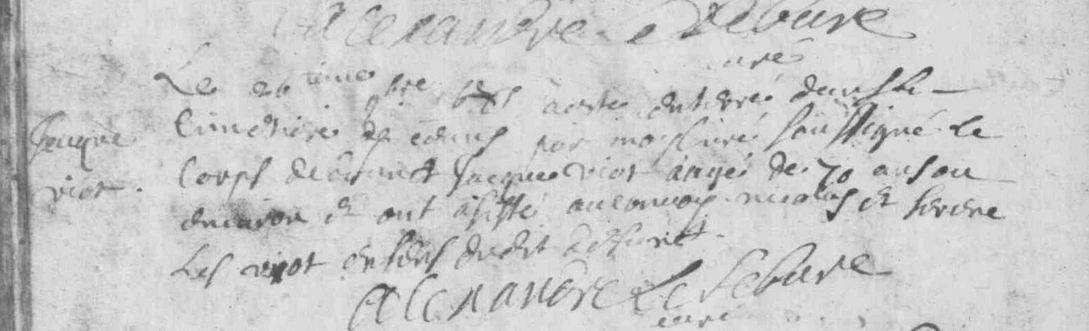 Alexandre Lefebure
curé
Le 26 ieme bre a este enterré dans le
Jacque
cimetiere de par moy curé soussigné le
viot.
corps de defunct Jacques viot aagé de 70 ans ou
environ et ont assisté au convoy nicolas et
les viot enfens dudit defunct.
Alexandre Lefebure
curé